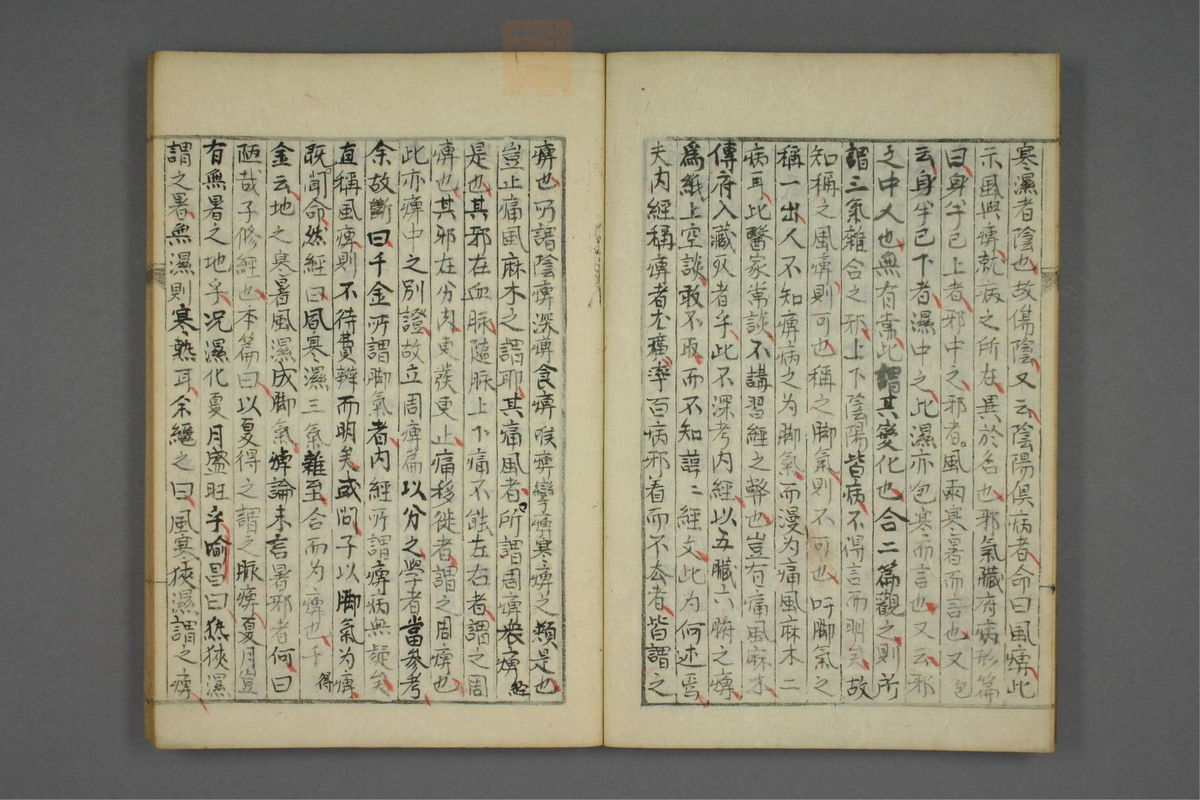 寒濕者陰也故傷陰又云陰陽俱病者命曰風痺此
示風與痺就病之所在異於名也邪氣臟府病形篇
曰身半已上者邪中之邪者風雨寒暑而言也又
云身半已下者濕中之此濕亦包寒而言也又云邪
之中人也無有常此謂其變化也合二篇觀之則所
謂三氣雜合之邪上下陰陽皆病不得言而明矣故
知稱之風痺則可也稱之脚氣則不可也吁脚氣之
稱一出人不知痺病之为脚氣而漫为痛風麻木二
病耳此醫家常談不講習經之弊也豈有痛風麻木
傳府入藏死者乎此不深考內經以五臟六腑之痺
爲紙上空談敢不取而不知諱二經文此为何述焉
夫内經稱痺者尤廣率百病邪着而不去者皆謂之
痺也乃謂陰痺深痺食痺喉痺攣痺寒痺之類是也
豈止痛風麻木之謂耶其痛風者所謂周痺衆痺
是也其邪在血脉隨脉上下痛不能左右者謂之周
痺也其邪在分肉更發更止痛移徙者謂之周痺也
此亦痺中之別證故立周痺篇以分之学者當参考
余故斷曰千金所謂脚氣者内經所謂痺病無疑矣
直稱風痺則不待費辨而明矣或問子以脚氣为痺
既聞命然經曰風寒濕三氣雜至合而为痺也千
金云地之寒暑風濕成脚氣痺論未言暑邪者何曰
陋哉子修經也本篇曰以夏得之謂之脉痺夏月豈
有無暑之地乎况濕化夏月盛旺乎喻昌曰熱狹濕
謂之暑無濕則寒熱耳余繼之曰風寒狹濕謂之痺